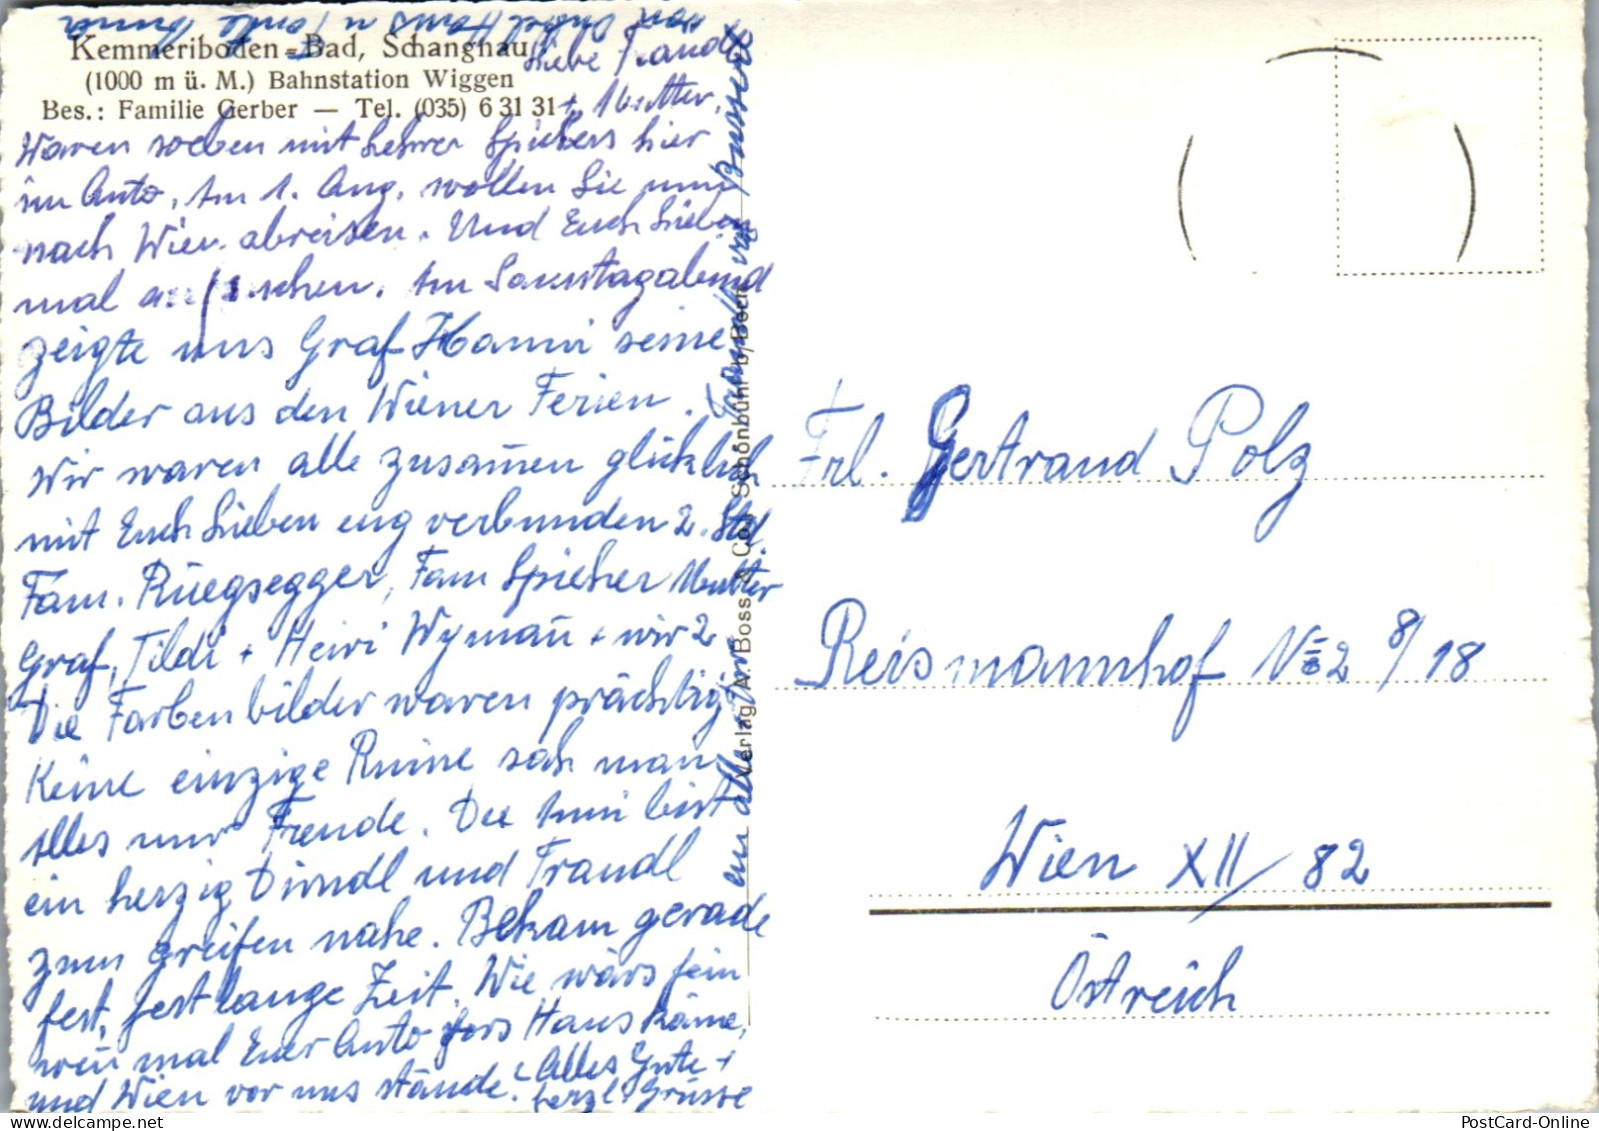 Kemmeriboden=Bad, Schangnau
(1000 m ü. M.) Bahnstation Wiggen
Bes.: Familie Gerber — Tel. (035) 6 31 31
Liebe Traudl
+ Mutter.
Waren soeben mit Lehrer Spichers hier
im Auto, Am 1. Aug. wollen Sie nun
nach Wien abreisen. Und Euch Lieben
mal aufsuchen. Am Samstagabend
zeigte uns Graf Hanni seine
Bilder aus den Wiener Ferien.
Wir waren alle zusam̄en glücklich
mit Euch Lieben eng verbunden 2. Std.
Fam. Rüegsegger, Fam Spicher Mutter
Graf, Tildi + Heiri Wyman̄ + wir 2
Die Farbenbilder waren prächtig
Keine einzige Ruine sah man
Alles nur Freude. Die Anni bist
ein herzig Dirndl und Traudl
zum greifen nahe. Bekam gerade
fest, fest lange Zeit. Wie wärs fein
wen̄ mal Euer Auto fors Haus käme,
und Wien vor uns stände. Alles Gute +
herzl. Grüsse
von Onkel Hans u Tante Anna
Verlag A. Boss & Co., Schönbühl b/Bern
Frl. Gertraud Polz
Reismannhof No 2 8/18
Wien XII/82
Östreich
PostCard-Online